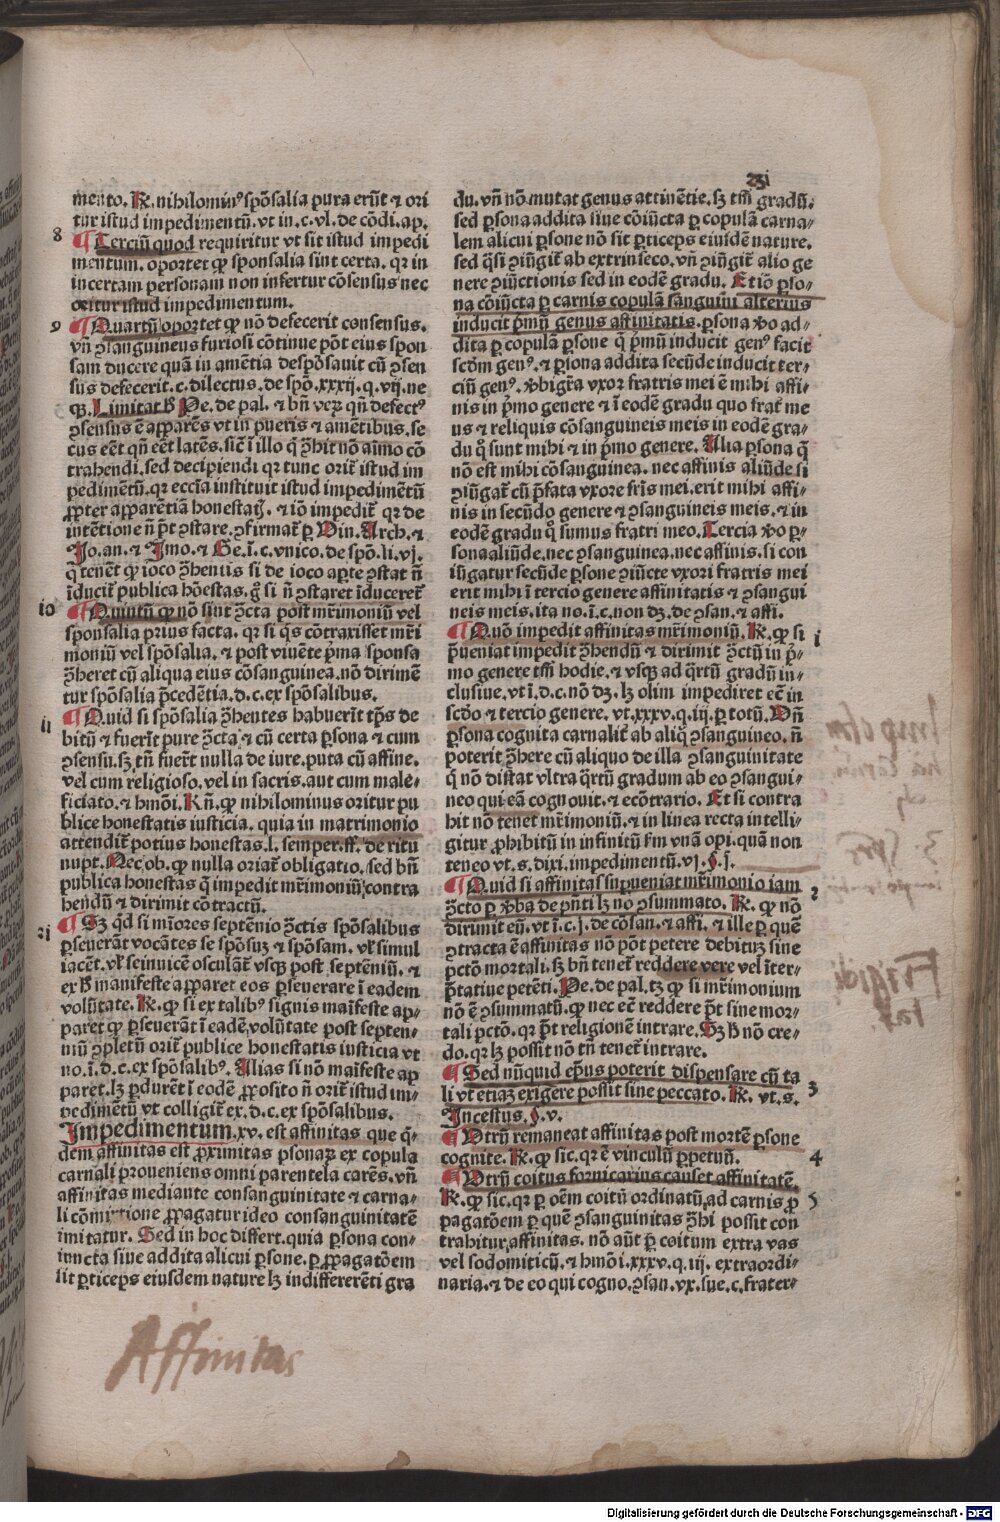 231
mento. R. nihilominꝰ spōsalia pura erūt ⁊ ori
tur istud impedimentū. vt in. c. vl. de cōdi. ap.
8
¶ Terciū quod requiritur vt sit istud impedi
mentum. oportet ꝙ sponsalia sint certa. qr in
incertam personam non infertur cōsensus nec
oritur istud impedimentum.
9
¶ Quartū oportet ꝙ nō defecerit consensus.
vn̄ ꝯsanguineus furiosi cōtinue pōt eius spon
sam ducere quā in amētia despōsauit cū ꝯsen
sus defecerit. c. dilectus. de spō. xxxij. q. vij. ne
qꝫ. Limitat h̄ Pe. de pal. ⁊ bn̄ veꝝ qn̄ defectꝰ
ꝯsensus ē apparēs vt in pueris ⁊ amētibus. se
cus eēt qn̄ eēt latēs. sic̄ ī illo q̄ ꝯhit nō aīmo cō
trahendi. sed decipiendi qr tunc orit̄ istud im
pedimētū. qr eccl̄ia instituit istud impedimētū
ꝓpter apparētiā honestatꝭ. ⁊ iō impedit̄ qr de
intētione n̄ p̄t ꝯstare. ꝯfirmat̄ ꝑ Vin. Arch. ⁊
Jo. an. ⁊ Imo. ⁊ Ge. ī. c. vnico. de spō. li. vj.
q̄ tenēt ꝙ ioco ꝯhentis si de ioco aꝑte ꝯstat n̄
īducit̄ publica hōestas. gͦ si n̄ ꝯstaret īduceret̄
io
¶ Quintū ꝙ nō sint ꝯcta post mr̄imoniū vel
sponsalia prius facta. qr si qͥs cōtraxisset mr̄i
moniū vel spōsalia. ⁊ post viuēte pͥma sponsa
ꝯheret cū aliqua eius cōsanguinea. nō dirimē
tur spōsalia p̄cedētia. d. c. ex spōsalibus.
ii
¶ Quid si spōsalia ꝯhentes habuerīt tp̄s de
bitū ⁊ fuerīt pure ꝯcta ⁊ cū certa ꝑsona ⁊ cum
ꝯsensu. sꝫ tn̄ fuer̄t nulla de iure. puta cū affine.
vel cum religioso. vel in sacris. aut cum male⸗
ficiato. ⁊ hmōi. Rn̄. ꝙ nihilominus oritur pu
blice honestatis iusticia. quia in matrimonio
attendit̄ potius honestas. l. semper. ff. de ritu
nupt. Nec ob. ꝙ nulla oriat̄ obligatio. sed bn̄
publica honestas q̄ impedit mr̄imoniū contra
hendū ⁊ dirimit cōtractū.
2i
¶ Sꝫ qͥd si mīores septēnio ꝯctis spōsalibus
ꝑseuerāt vocātes se spōsuꝫ ⁊ spōsam. vl̄ simul
iacēt. vl̄ seinuicē osculāt̄ vsqꝫ post septēniū. ⁊
ex h̄ manifeste apparet eos ꝑseuerare ī eadem
volūtate. R. ꝙ si ex talibꝰ signis maīfeste ap⸗
paret ꝙ ꝑseuerāt ī eadē volūtate post septen⸗
niū ꝯpletū orit̄ publice honestatis iusticia vt
no. ī. d. c. ex spōsalibꝰ. Alias si nō maīfeste ap
paret. lꝫ ꝑdurēt ī eodē ꝓposito n̄ orit̄ istud im⸗
pedimētū vt colligit̄ ex. d. c. ex spōsalibus.
Impedimentum. xv. est affinitas que q̄⸗
dem affinitas est ꝓximitas ꝑsonaꝝ ex copula
carnali proueniens omni parentela carēs. vn̄
affinitas mediante consanguinitate ⁊ carna⸗
li cōmixtione ꝓpagatur ideo consanguinitatē
imitatur. Sed in hoc differt. quia ꝑsona con⸗
iuncta siue addita alicui ꝑsone. ꝑ ꝓpagatōem
sit ꝑticeps eiusdem nature lꝫ indifferēti gra
du. vn̄ nō mutat genus attinētie. sꝫ tm̄ gradū.
sed ꝑsona addita siue cōiūcta ꝑ copulā carna⸗
lem alicui ꝑsone nō sit ꝑticeps eiusdē nature.
sed qͣsi ꝯiūgit̄ ab extrinseco. vn̄ ꝯiūgit̄ alio ge
nere ꝯiūctionis sed in eodē gradu. Et iō ꝑso⸗
na cōiūcta ꝑ carnis copulā sanguini alterius
inducit pͥmū genus affinitatis. ꝑsona v̄o ad⸗
dita ꝑ copulā ꝑsone q̄ pͥmū inducit genꝰ facit
scd̄m genꝰ. ⁊ ꝑsona addita secūde inducit ter⸗
ciū genꝰ. v̄bigr̄a vxor fratris mei ē mihi affi⸗
nis in pͥmo genere ⁊ ī eodē gradu quo frat̄ me
us ⁊ reliquis cōsanguineis meis in eodē gra⸗
du qͦ sunt mihi ⁊ in pͥmo genere. Alia ꝑsona q̄
nō est mihi cōsanguinea. nec affinis aliūde si
ꝯiūgat̄ cū p̄fata vxore fr̄is mei. erit mihi affi⸗
nis in secūdo genere ⁊ ꝯsanguineis meis. ⁊ in
eodē gradu qͦ sumus fratri meo. Tercia v̄o ꝑ⸗
sona aliūde. nec ꝯsanguinea. nec affinis. si con
iūgatur secūde ꝑsone ꝯiūcte vxori fratris mei
erit mihi ī tercio genere affinitatis ⁊ ꝯsangui
neis meis. ita no. ī. c. non dꝫ. de ꝯsan. ⁊ affi.
i
¶ Quō impedit affinitas mr̄imoniū. R. ꝙ si
p̄ueniat impedit ꝯhendū ⁊ dirimit ꝯctū in pͥ⸗
mo genere tm̄ hodie. ⁊ vsqꝫ ad qͣrtū gradū in⸗
clusiue. vt ī. d. c. nō dꝫ. lꝫ olim impediret eē in
scd̄o ⁊ tercio genere. vt. xxxv. q. iij. ꝑ totū. Vn̄
ꝑsona cognita carnalit̄ ab aliqͦ ꝯsanguineo. n̄
poterit ꝯhere cū aliquo de illa ꝯsanguinitate
q̄ nō distat vltra qͣrtū gradum ab eo ꝯsangui⸗
neo qui eā cognouit. ⁊ ecōtrario. Et si contra
hit nō tenet mr̄imoniū. ⁊ in linea recta intelli⸗
gitur ꝓhibitū in infinitū fm vnā opi. quā non
teneo vt. s. dixi. impedimentū. vj. §. j.
2
¶ Quid si affinitas suꝑueniat mr̄imonio iam
ꝯcto ꝑ v̄ba de pn̄ti lꝫ nō ꝯsummato. R. ꝙ nō
dirimit eū. vt ī. c. j. de cōsan. ⁊ affi. ⁊ ille ꝑ quē
ꝯtracta ē affinitas nō pōt petere debituꝫ sine
pctō mortali. sꝫ bn̄ tenet̄ reddere vere vel īter⸗
p̄tatiue petēti. Pe. de pal. tꝫ ꝙ si mr̄imonium
nō ē ꝯsummatū. ꝙ nec eēt reddere p̄t sine mor⸗
tali pctō. qr p̄t religionē intrare. Sꝫ h̄ nō cre⸗
do. qr lꝫ possit nō tn̄ tenet̄ intrare.
3
¶ Sed nūquid ep̄us poterit dispensare cū ta
li vt etiaꝫ exigere possit sine peccato. R. vt. s.
Incestus. §. v.
¶ Vtrū remaneat affinitas post mortē ꝑsone
4
cognite. R. ꝙ sic. qr ē vinculū ꝑpetuū.
¶ Vtrū coitus fornicarius causet affinitatē.
5
R. ꝙ sic. qr ꝑ oēm coitū ordinatū ad carnis ꝓ
pagatōem ꝑ quē ꝯsanguinitas ꝯhi possit con
trahitur affinitas. nō aūt ꝑ coitum extra vas
vel sodomiticū. ⁊ hmōi. xxxv. q. iij. extraordi⸗
naria. ⁊ de eo qui cogno. ꝯsan. vx. sue. c. frater⸗
Affinitas
Frigidi
tas.
Digitalisierung gefördert durch die Deutsche Forschungsgemeinschaft - DFG